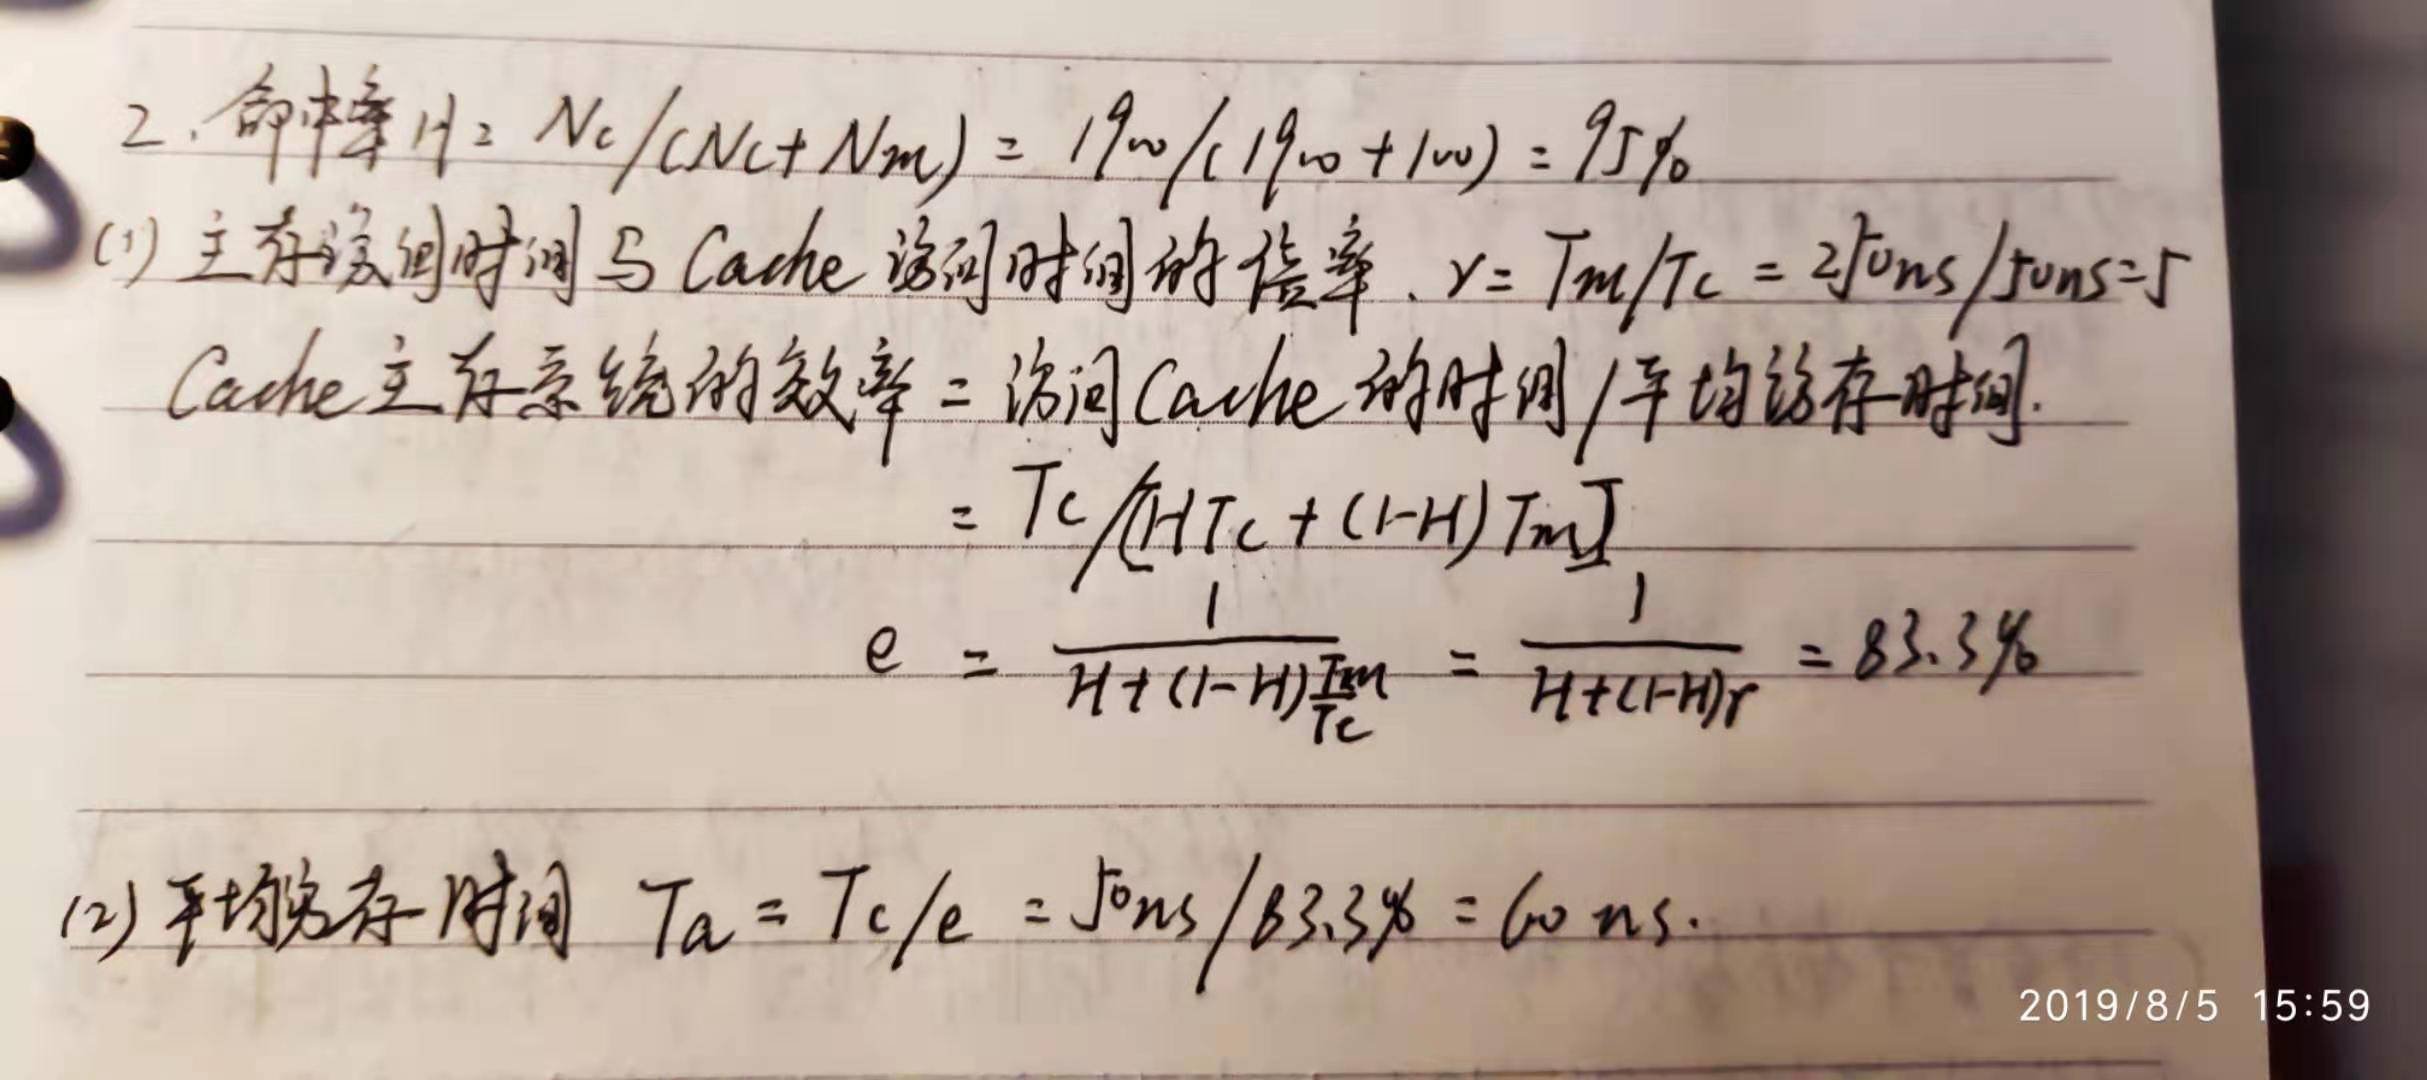 2. 命中率 H = Nc/(Nc+Nm) = 1900/(1900+100) = 95%
(1) 主存访问时间与Cache访问时间的倍率. r = Tm/Tc = 250ns/50ns=5
Cache主存系统的效率 = 访问Cache的时间/平均访存时间.
= Tc/[HTc + (1-H) Tm]
e = 1/(H+(1-H)Tm/Tc) = 1/(H+(1-H)r) = 83.3%
(2) 平均访存时间 Ta = Tc/e = 50ns/83.3% = 60 ns.
2019/8/5 15:59